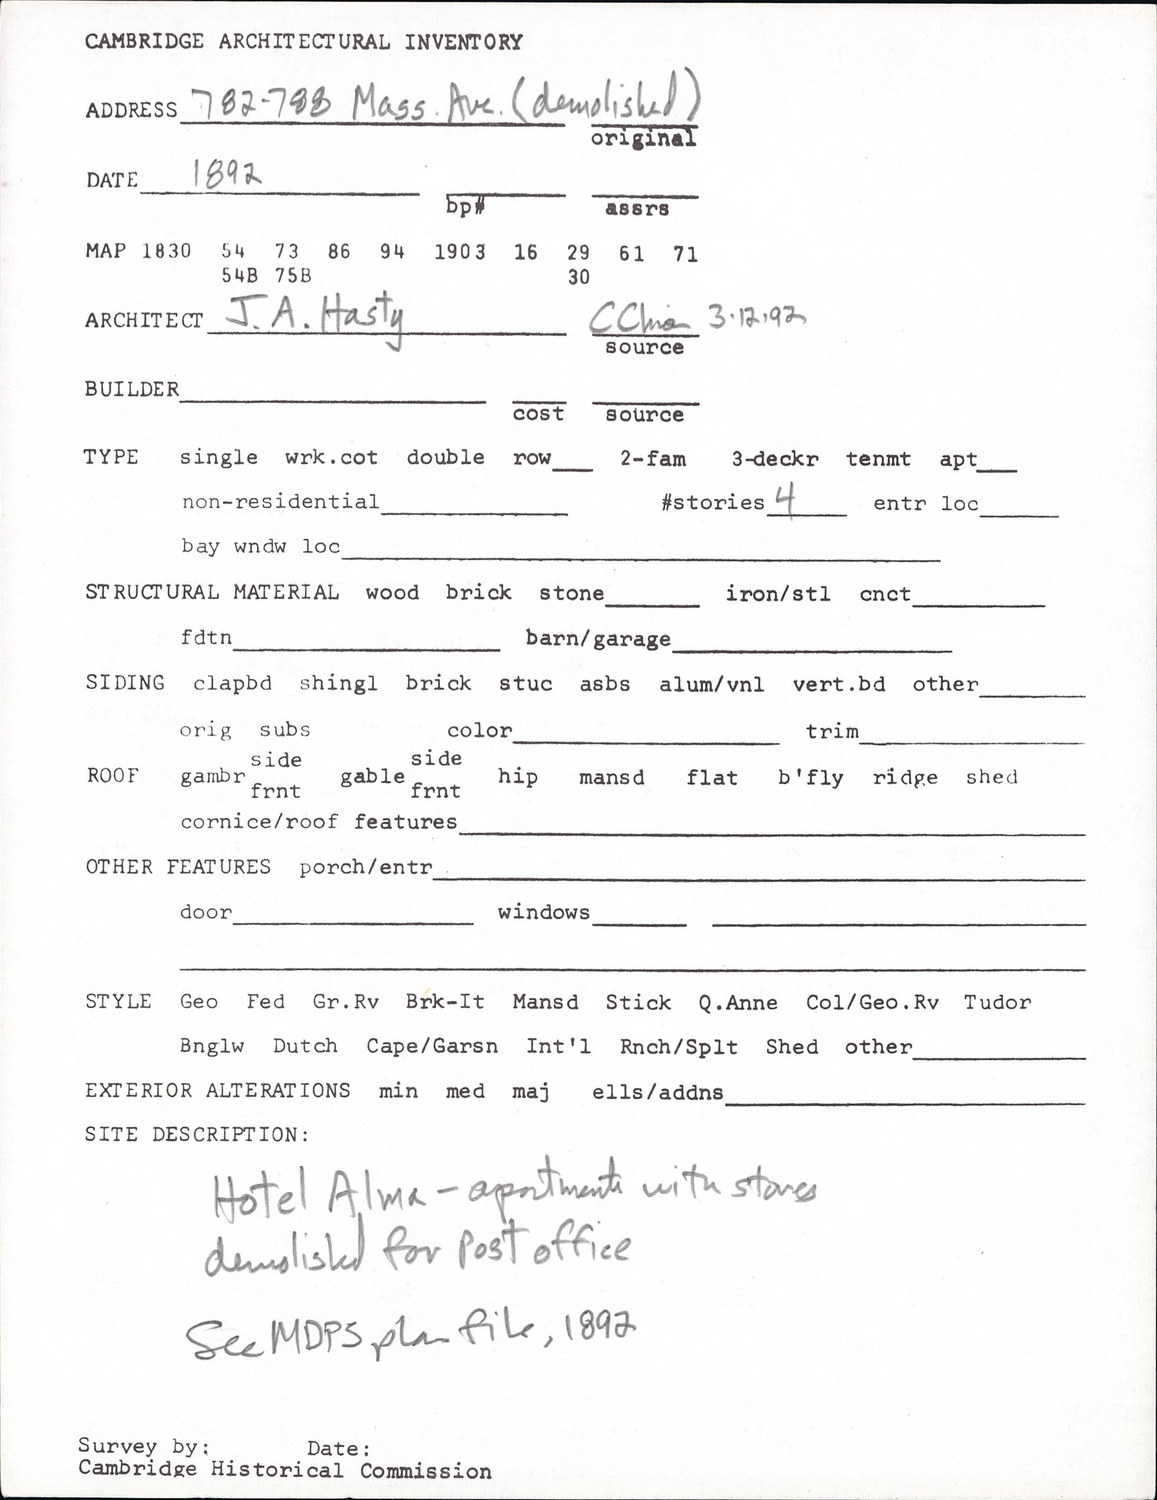 CAMBRIDGE ARCHITECTURAL INVENTORY
ADDRESS 782-788 Mass. Ave. (demolished)
original
DATE 1892
bp# assrs
MAP 1830 54 73 86 94 1903 16 29 61 71
54B 75B 30
ARCHITECT J. A. Hasty 3.12.92
source
BUILDER
cost source
TYPE single wrk.cot double row 2-fam 3-deckr tenmt apt
non-residential #stories 4 entr loc
bay wndw loc
STRUCTURAL MATERIAL wood brick stone iron/stl cnct
fdtn barn/garage
SIDING clapbd shingl brick stuc asbs alum/vnl vert.bd other
orig subs color trim
side side
ROOF gambr gable hip mansd flat b'fly ridge shed
frnt frnt
cornice/roof features
OTHER FEATURES porch/entr
door windows
STYLE Geo Fed Gr.Rv Brk-It Mansd Stick Q.Anne Col/Geo.Rv Tudor
Bnglw Dutch Cape/Garsn Int'l Rnch/Splt Shed other
EXTERIOR ALTERATIONS min med maj ells/addns
SITE DESCRIPTION:
Hotel Alma - apartments with stores
demolished for Post office
See MDPS plan file, 1892
Survey by: Date:
Cambridge Historical Commission